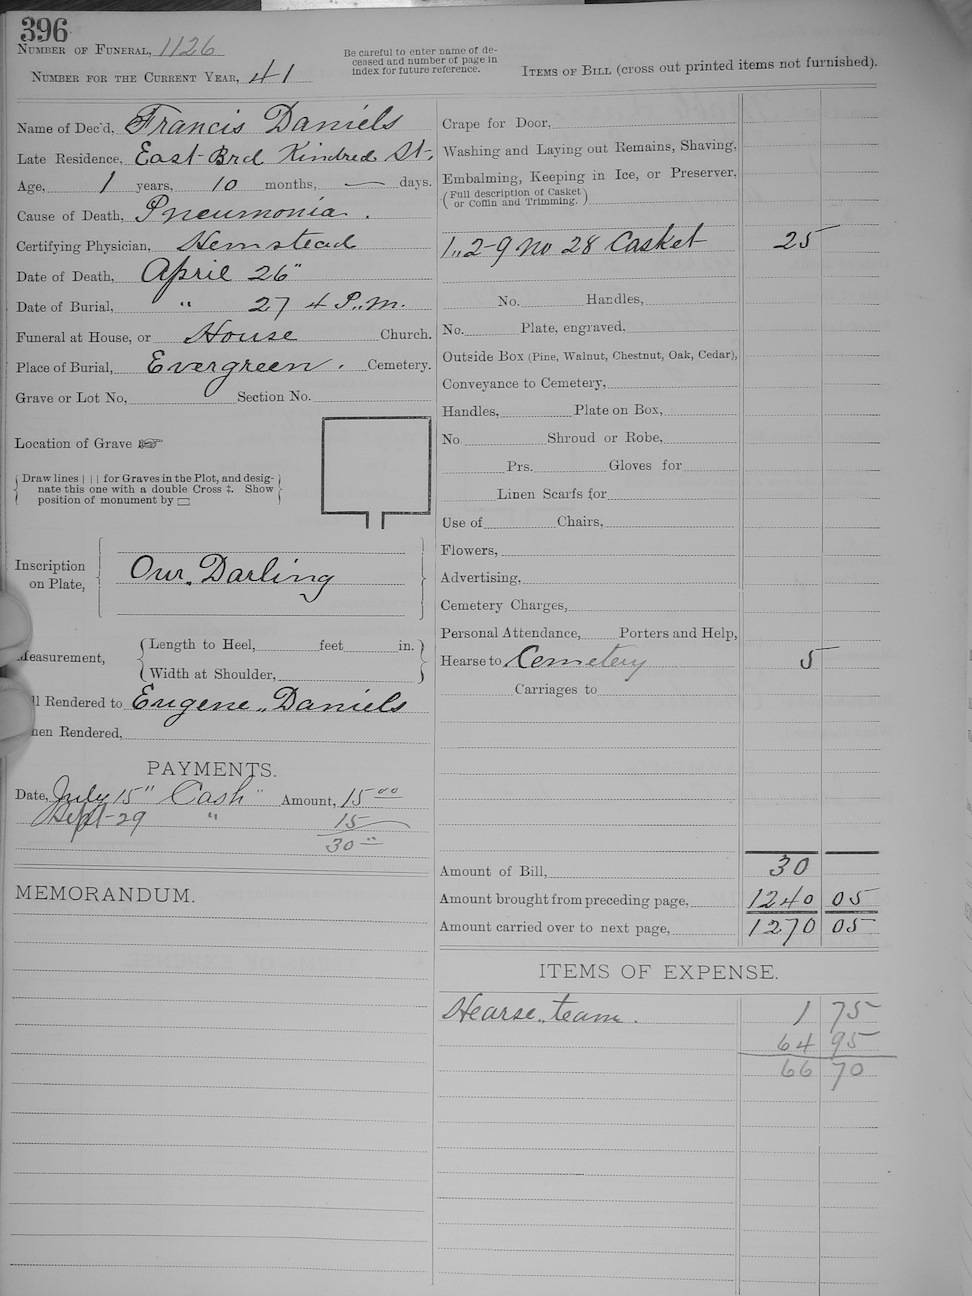 396
Number of Funeral, 1126
Number for the Current Year, 41
Be careful to enter name of de-
ceased and number of page in
index for future reference.
Items of Bill (cross out printed items not furnished).
Name of Dec'd, Francis Daniels
Late Residence, East Brd Kindred St.,
Age, 1 years, 10 months, — days.
Cause of Death, Pneumonia.
Certifying Physician, Hemstead
Date of Death, April 26"
Date of Burial, " 27 4 P.m.
Funeral at House, or House Church.
Place of Burial, Evergreen. Cemetery.
Grave or Lot No, Section No.
Location of Grave ☞
Draw lines | | | for Graves in the Plot, and desig-
nate this one with a double Cross ‡. Show
position of monument by ▭
Inscription
on Plate,
Our Darling
Measurement,
Length to Heel, feet in.
Width at Shoulder,
ll Rendered to Eugene Daniels
hen Rendered,
PAYMENTS.
Date, July 15" Cash " Amount, 15 00
Sept-29 " 15
30 --
MEMORANDUM.
Crape for Door,
Washing and Laying out Remains, Shaving,
Embalming, Keeping in Ice, or Preserver,
(Full description of Casket
or Coffin and Trimming.)
1,, 2-9 No 28 Casket 25
No. Handles,
No. Plate, engraved,
Outside Box (Pine, Walnut, Chestnut, Oak, Cedar),
Conveyance to Cemetery,
Handles, Plate on Box,
No. Shroud or Robe,
Prs. Gloves for
Linen Scarfs for
Use of Chairs,
Flowers,
Advertising,
Cemetery Charges,
Personal Attendance, Porters and Help,
Hearse to Cemetery 5
Carriages to
Amount of Bill, 30
Amount brought from preceding page, 1240 05
Amount carried over to next page, 1270 05
ITEMS OF EXPENSE.
Hearse,, team. 1 75
64 95
66 70